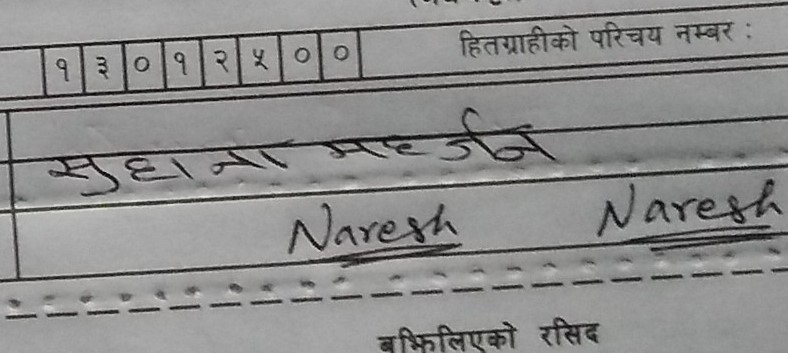 १३०१२५०० हितग्राहीको परिचय नम्बर :
सुहाना महर्जन
Naresh Naresh
बुझिलिएको रसिद